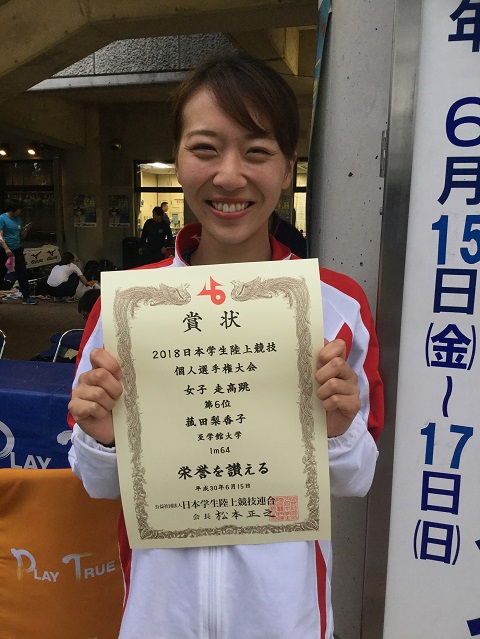 賞状
2018日本学生陸上競技
個人選手権大会
女子 走高跳
第6位
菰田梨香子
至学館大学
1m64
栄誉を讃える
平成30年6月15日
公益社団法人日本学生陸上競技連合
会長 松本正之
年 6月15日(金)〜17日(日)
PLAY
PLAY TRUE